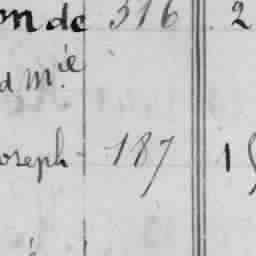 on de 316 2
d m.ié
oseph 187 1